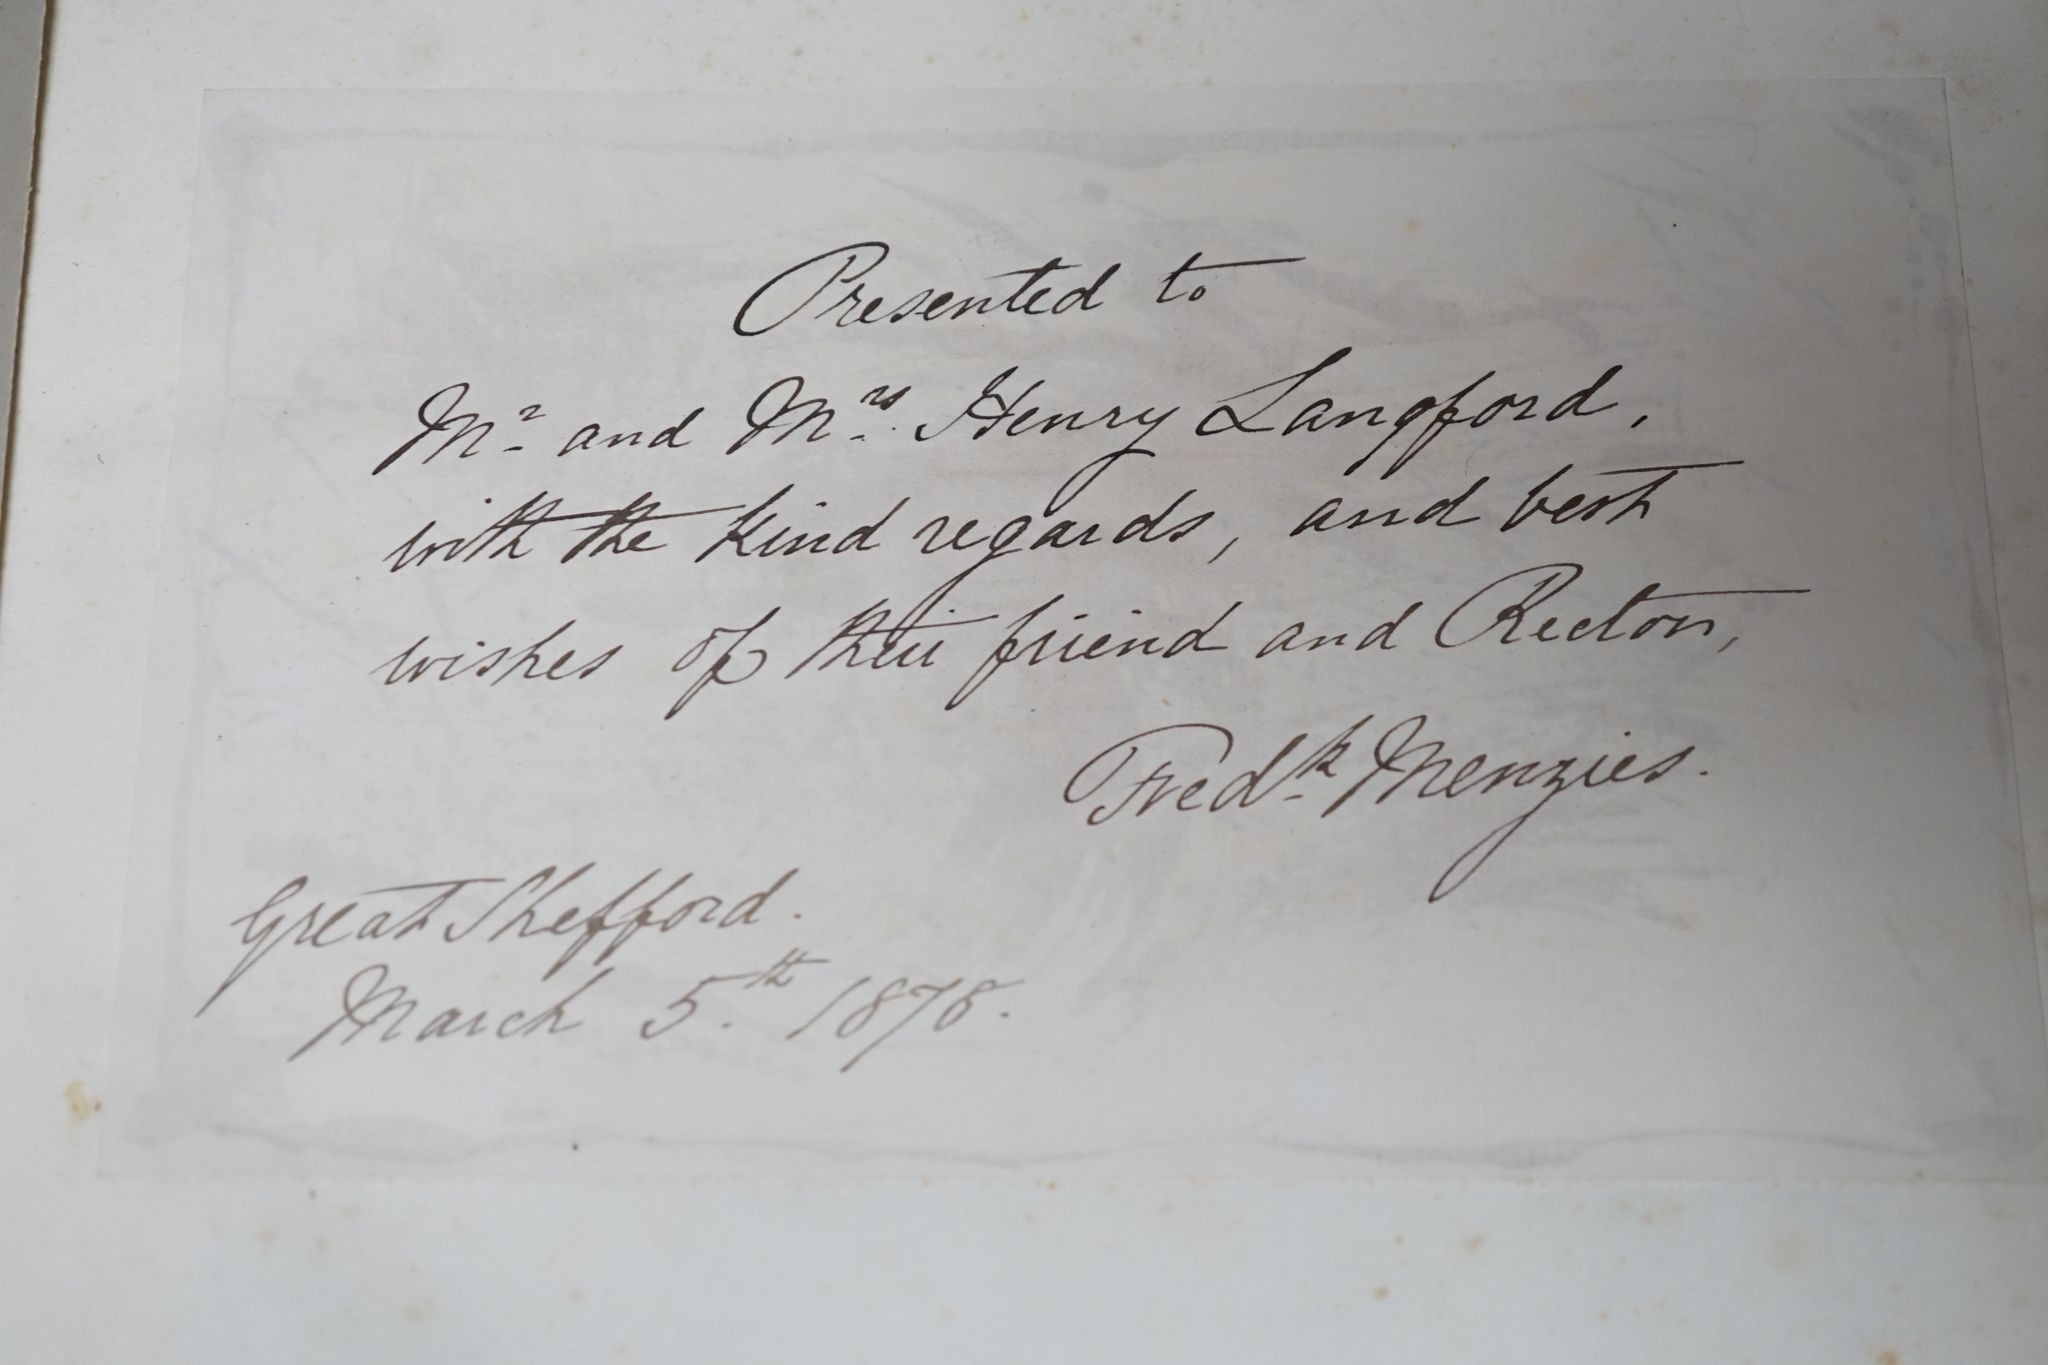 Presented to
Mr. and Mrs. Henry Langford,
with the kind regards, and best
wishes of their friend and Rector,
Fredk Menzies.
Great Shefford.
March 5th 1878.